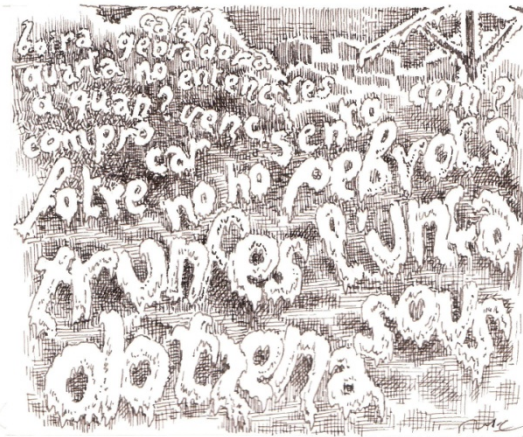 calaf
boira gebradora
quarta no entenc res com?
a quan? venc sento
compro car
potre no ho pebrots
trunfes
dotzena sous